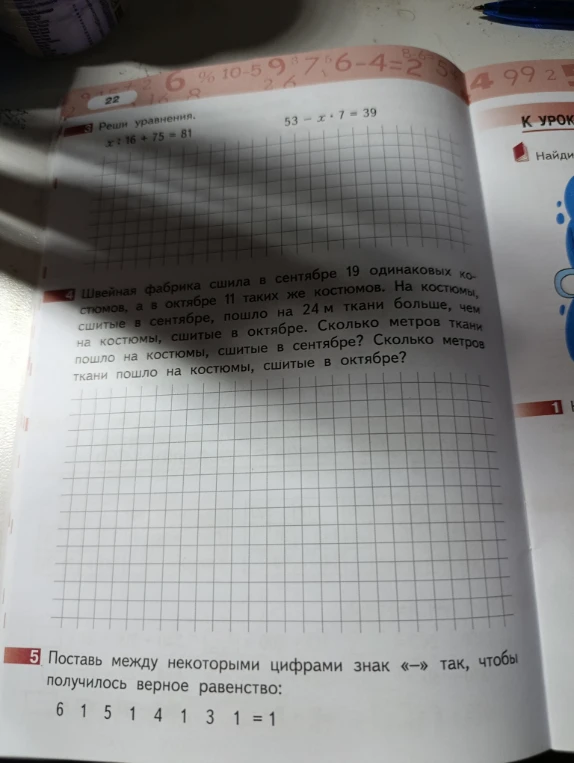 22
3 Реши уравнения.
x : 16 + 75 = 81
53 − x · 7 = 39
4 Швейная фабрика сшила в сентябре 19 одинаковых ко-
стюмов, а в октябре 11 таких же костюмов. На костюмы,
сшитые в сентябре, пошло на 24 м ткани больше, чем
на костюмы, сшитые в октябре. Сколько метров ткани
пошло на костюмы, сшитые в сентябре? Сколько метров
ткани пошло на костюмы, сшитые в октябре?
5 Поставь между некоторыми цифрами знак «−» так, чтобы
получилось верное равенство:
6 1 5 1 4 1 3 1 = 1
К УРОК
Найди
1